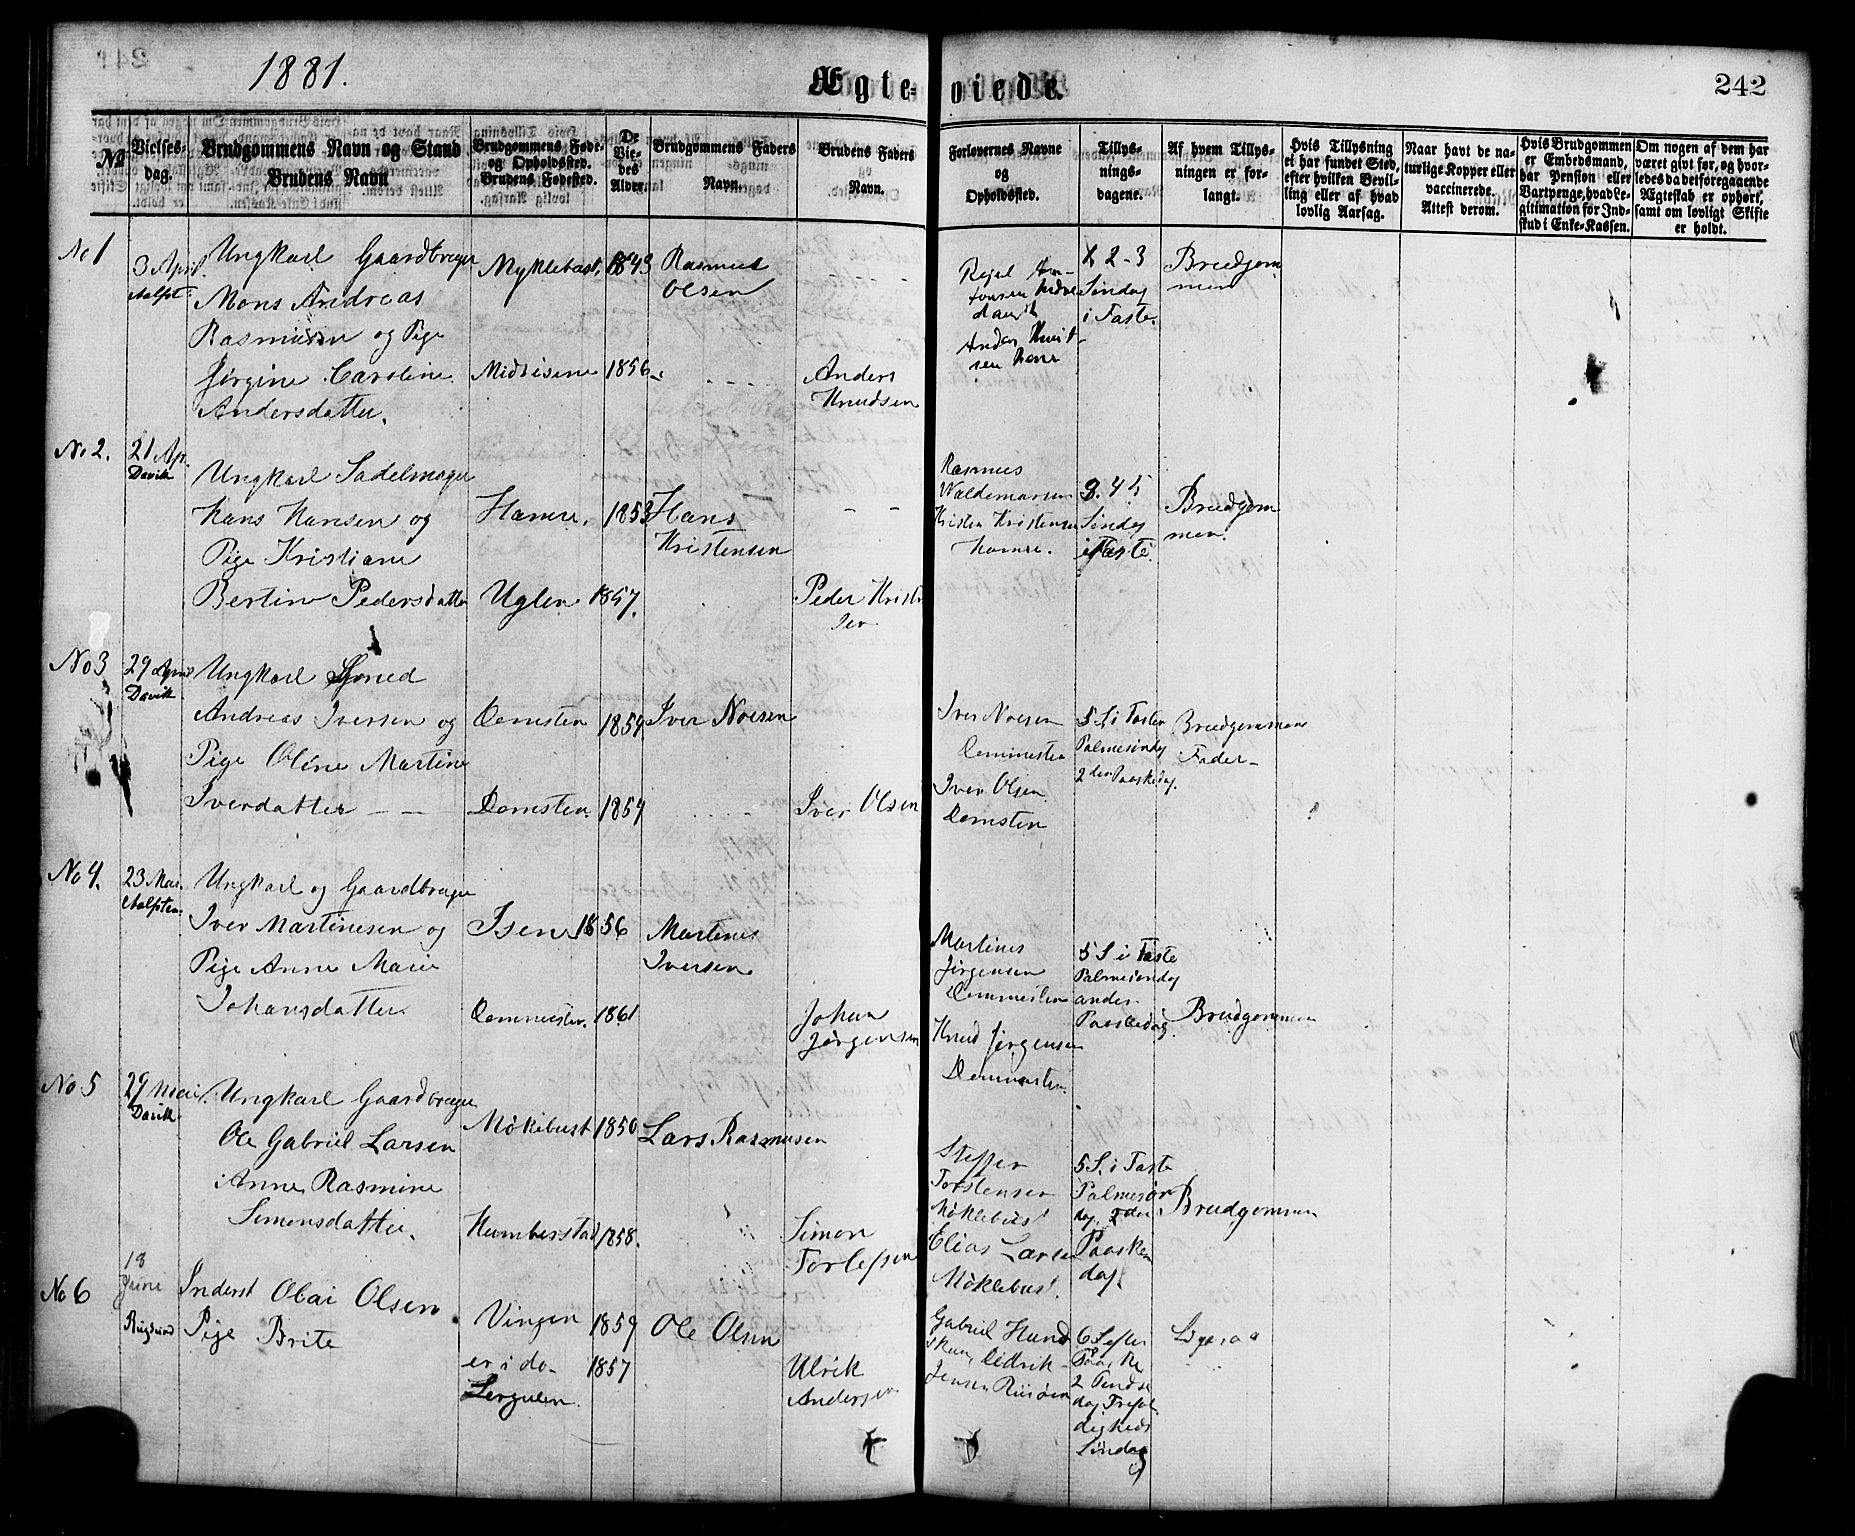 1881.
Ægte=viede.
242
No
Vielses-dag.
Brudgommens Navn og Stand
Brudens Navn
Brudgommens Føde- og Opholdssted.
Brudens Fødested.
De Vie-des Alder.
Brudgommens Faders Navn.
Brudens Faders Navn.
Forlovernes Navne og Opholdssted.
Tillys-nings-dagene.
Af hvem Tillys-ningen er for-langt.
Hvis Tillysning ei har fundet Sted, efter hvilken Bevil-ling eller af hvad lovlig Aarsag.
Naar havt de na-turlige Kopper eller vaccinerede. Attest derom.
Hvis Brudgommen er Embedsmand, har Pension eller Vartpenge, hvad Le-gitimation for Ind-skud i Enke-Kassen.
Om nogen af dem har været givt før, og hvor-ledes da det foregaaende Ægteskab er ophørt, samt om lovligt Skifte er holdt.
No 1
3 April
Aalfot
Ungkarl Gaardbruger
Mons Andreas
Rasmussen og Pige
Jørgine Caroline
Andersdatter.
Myklebust, 1843
Rasmus
Olsen
Midtisene 1856
Anders
Knudsen
1 2-3
Søndag
i Faste.
Brudgom
men
No 2.
21 Ap.
Davik
Ungkarl Sadelmager
Hans Hansen og
Pige Kristiane
Bertine Pedersdatter
Hamre. 1853
Hans
Kristensen
Uglen 1857.
Peder Krist
sen
Rasmus
Waldemarsen
Kristen Kristensen
Hamre.
3. 4 5
Søndag
i Faste
Brudgom
men.
No 3
29 April
Davik
Ungkarl
Andreas Iversen og
Pige Oline Martine
Iverdatter
Domsten 1859
Iver Noesen
Domsten 1859
Iver Olsen
Iver Noesen
Demmesten
Iver Olsen
Domsten
5 S. i Faste
Palmesøndag
2den Paaskedag.
Brudgommens
Fader
No 4.
23 Mai
Aalfoten
Ungkarl og Gaardbruger
Iver Martinesen og
Pige Anne Marie
Johansdatter
Isene 1856
Martines
Iversen
Demmesten. 1861
Johan
Jørgensen
Martines
Jørgensen
Demmesten
Knud Jørgensen
Demmesten
5 S i Faste
Palmesøndag
anden
Paaskedag.
Brudgommen
No 5
29 Mai
Davik
Ungkarl Gaardbruger
Ole Gabriel Larsen
Anne Rasmine
Simonsdatter.
Møklebust 1850
Lars Rasmusen
Humberstad 1858.
Simon
Torlefsen
Steffen
Torstensen
Møklebust
Elias Larsen
Møklebust.
5 S. i Faste
Palmesøn
dag, 2den
Paaske
dag
Brudgommen
No 6
18
June
Rugsund
Inderst Olai Olsen
Pige Brite
Vingen 1859
er i do
1857
Ole Olsen
Ulrik
Andersen
Gabriel Hund
skun, Didrik
Jensen Riisøen
6 S efter
Paaske
2 Pindse
dag Trefol
digheds
Søndag
Ligesaa